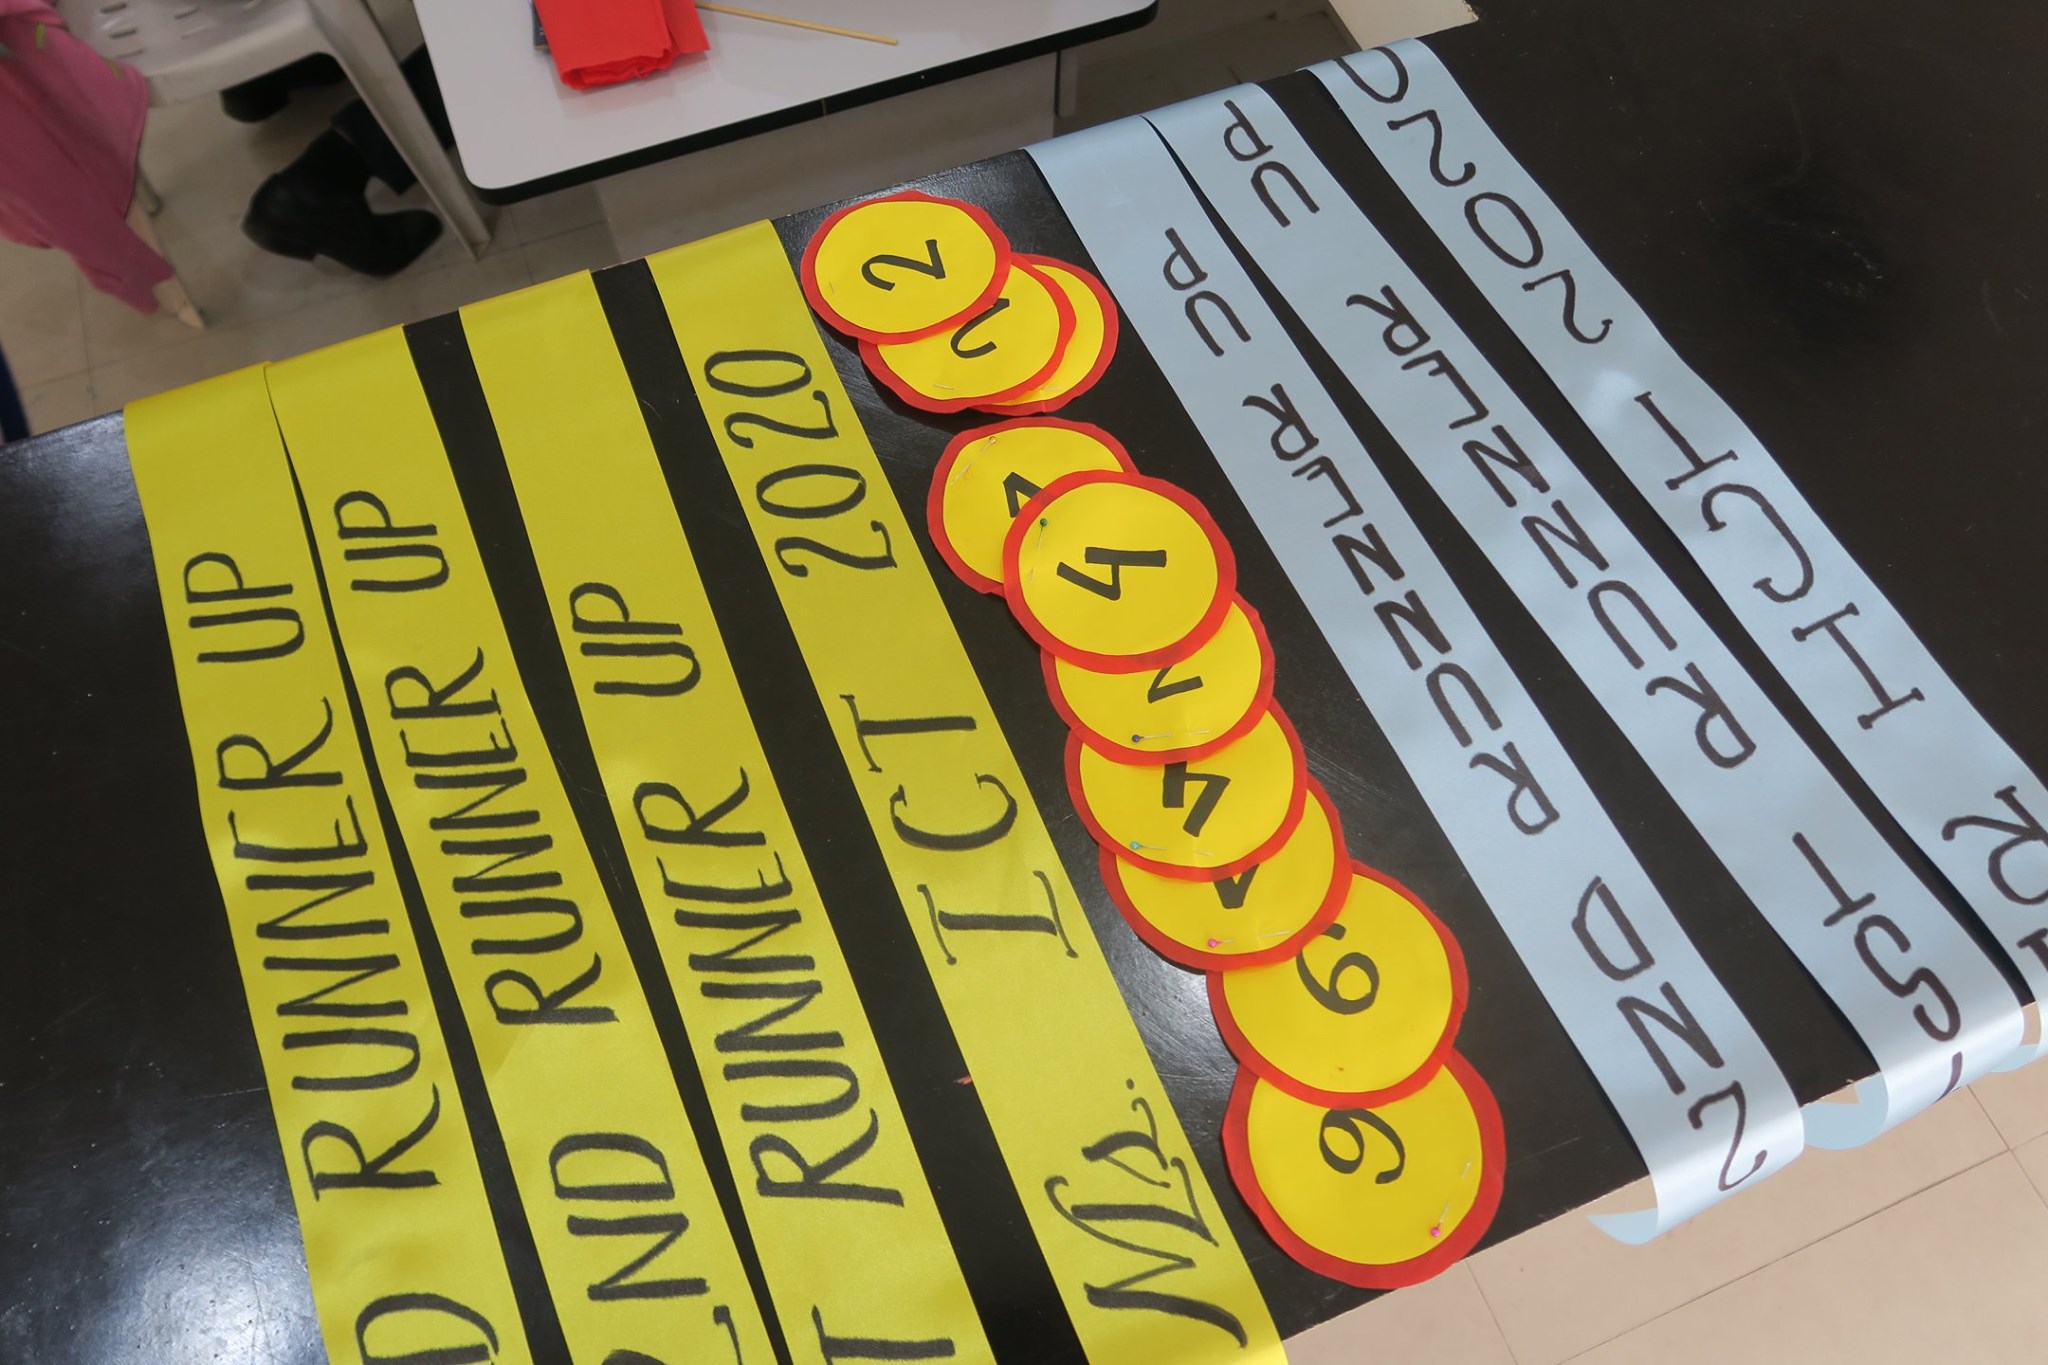 D RUNNER UP
ND RUNNER UP
T RUNNER UP
Ms. ICT 2020
2
2
4
4
6
6
2ND RUNNER UP
1ST RUNNER UP
R ICT 2020